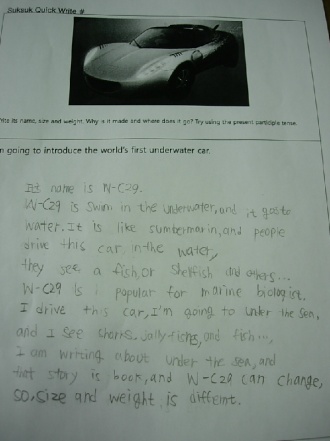 Suksuk Quick Write #
ite its name, size and weight. Why is it made and where does it go? Try using the present participle tense.
n going to introduce the world's first underwater car.
It's name is W-C29.
W-C29 is swim in the underwater, and it goes to
water. It is like sumbermarin, and people
drive this car. in the water,
they see, a fish, or shellfish and others...
W-C29 is popular for marine biologist.
I drive this car, I'm going to under the sea,
and I see sharks, jally-fishs, and fish...,
I am writing about under the sea, and
that story is book, and W-C29 can change,
so, size and weight is diffeint.